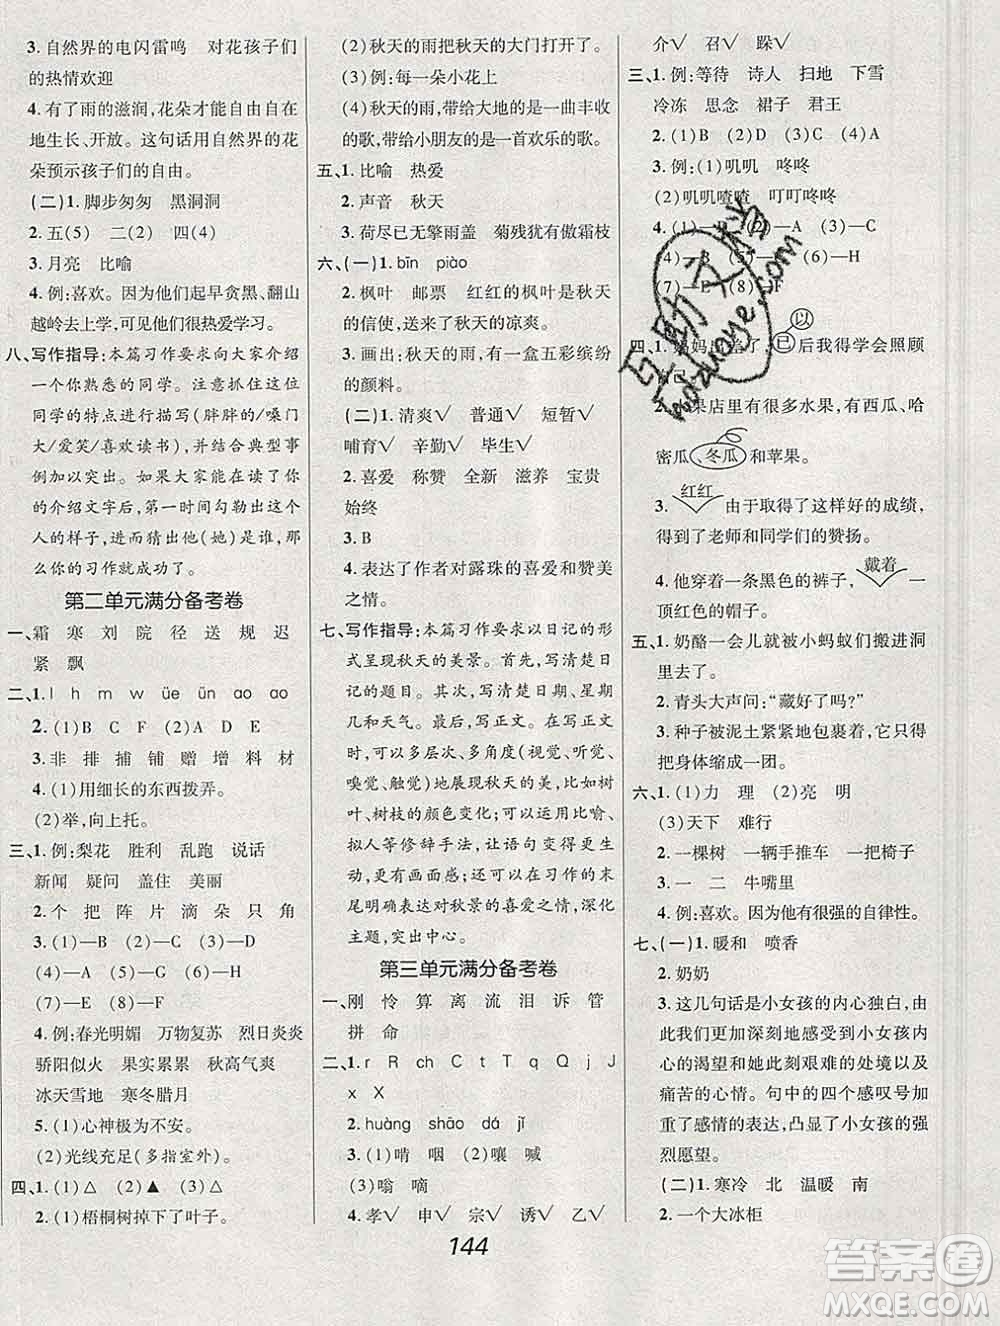 3. 自然界的电闪雷鸣 对花孩子们
的热情欢迎
4. 有了雨的滋润,花朵才能自由自在
地生长、开放。这句话用自然界的花
朵预示孩子们的自由。
(二)1. 脚步匆匆 黑洞洞
2. 五(5) 二(2) 四(4)
3. 月亮 比喻
4. 例:喜欢。因为他们起早贪黑、翻山
越岭去上学,可见他们很热爱学习。
八、写作指导:本篇习作要求向大家介绍
一个你熟悉的同学。注意抓住这位
同学的特点进行描写(胖胖的/嗓门
大/爱笑/喜欢读书),并结合典型事
例加以突出。如果大家能在读了你
的介绍文字后,第一时间勾勒出这个
人的样子,并猜出他(她)是谁,那么
你的习作就成功了。
第二单元满分备考卷
一、霜 寒 刘 院 径 送 规 迟
紧 飘
二、1. l h m w üe ün ɑo ɑo
2. (1)B C F (2)A D E
3. 非 排 捕 铺 赠 增 料 材
4. (1)用细长的东西拨弄。
(2)举,向上托。
三、1. 例:梨花 胜利 乱跑 说话
新闻 疑问 盖住 美丽
2. 个 把 阵 片 滴 朵 只 角
3. (1)—B (2)—C (3)—D
(4)—A (5)—G (6)—H
(7)—E (8)—F
4. 例:春光明媚 万物复苏 烈日炎炎
骄阳似火 果实累累 秋高气爽
冰天雪地 寒冬腊月
5. (1)心神极为不安。
(2)光线充足(多指室外)。
四、1. (1)△ (2)▲ (3)△
2. (1)梧桐树掉下了叶子。
(2)秋天的雨把秋天的大门打开了。
(3)例:每一朵小花上
(4)秋天的雨,带给大地的是一曲丰收
的歌,带给小朋友的是一首欢乐的歌。
五、1. 比喻 热爱
2. 声音 秋天
3. 荷尽已无擎雨盖 菊残犹有傲霜枝
六、(一)1. bīn piào
2. 枫叶 邮票 红红的枫叶是秋天
的信使,送来了秋天的凉爽。
3. 画出:秋天的雨,有一盒五彩缤纷
的颜料。
(二)1. 清爽√ 普通√ 短暂√
哺育√ 辛勤√ 毕生√
2. 喜爱 称赞 全新 滋养 宝贵
始终
3. B
4. 表达了作者对露珠的喜爱和赞美
之情。
七、写作指导:本篇习作要求以日记的形
式呈现秋天的美景。首先,写清楚日
记的题目。其次,写清楚日期、星期
几和天气。最后,写正文。在写正文
时,可以多层次、多角度(视觉、听觉、
嗅觉、触觉)地展现秋天的美,如树
叶、树枝的颜色变化等,使用比喻、拟
人等修辞手法,让语句变得更加优
美,画面感更强。可以在习作的末
尾明确对秋景的喜爱之情,深化
主题,突出中心。
第三单元满分备考卷
一、刚 怜 算 离 流 泪 诉 管
拼 命
二、1. r R ch C T q Q j J
x X
2. huàng shāo dá jǐ
3. (1)啃 咽 (2)嚷 喊
(3)嗡 嘀
4. 孝√ 申√ 宗√ 诱√ 乙√
介√ 召√ 跺√
三、1. 例:等待 诗人 扫地 下雪
冷冻 思念 裙子 君王
2. (1)B (2)D (3)A (4)C
3. 例:(1)叽叽 咚咚
(2)叽叽喳喳 叮叮咚咚
4. (1)—G (2)—A (3)—C
(4)—B (5)—D (6)—H
(7)—E (8)—F
以
四、1. 妈妈 已后我得学会照顾
自己。
2. 水果店里有很多水果,有西瓜、哈
密瓜、冬瓜和苹果。
红红
3. 由于取得了这样好的成绩,
得到了老师和同学们的赞扬。
戴着
4. 他穿着一条黑色的裤子,一
顶红色的帽子。
五、1. 奶酪一会儿就被小蚂蚁们搬进洞
里去了。
2. 青头大声问:“藏好了吗?”
3. 种子被泥土紧紧地包裹着,只能
把身体缩成一团。
六、1. (1)力 理 (2)亮 明
(3)天下 难行
2. 一棵树 一辆手推车 一把椅子
3. 一 二 牛嘴里
4. 例:喜欢。因为他有很强的自律性。
七、(一)1. 暖和 喷香
2. 奶奶
3. 这几句话是小女孩的内心独白,由
此我们更加深刻地感受到小女孩内
心的渴望和她此刻艰难的处境以及
痛苦的心情。句中的四个感叹号加
重了感情的表达,凸显了小女孩的强
烈愿望。
(二)1. 寒冷 北 温暖 南
2. 一个大冰柜
144
互助文档
hdzuoye.com
答案圈
MXQE.COM